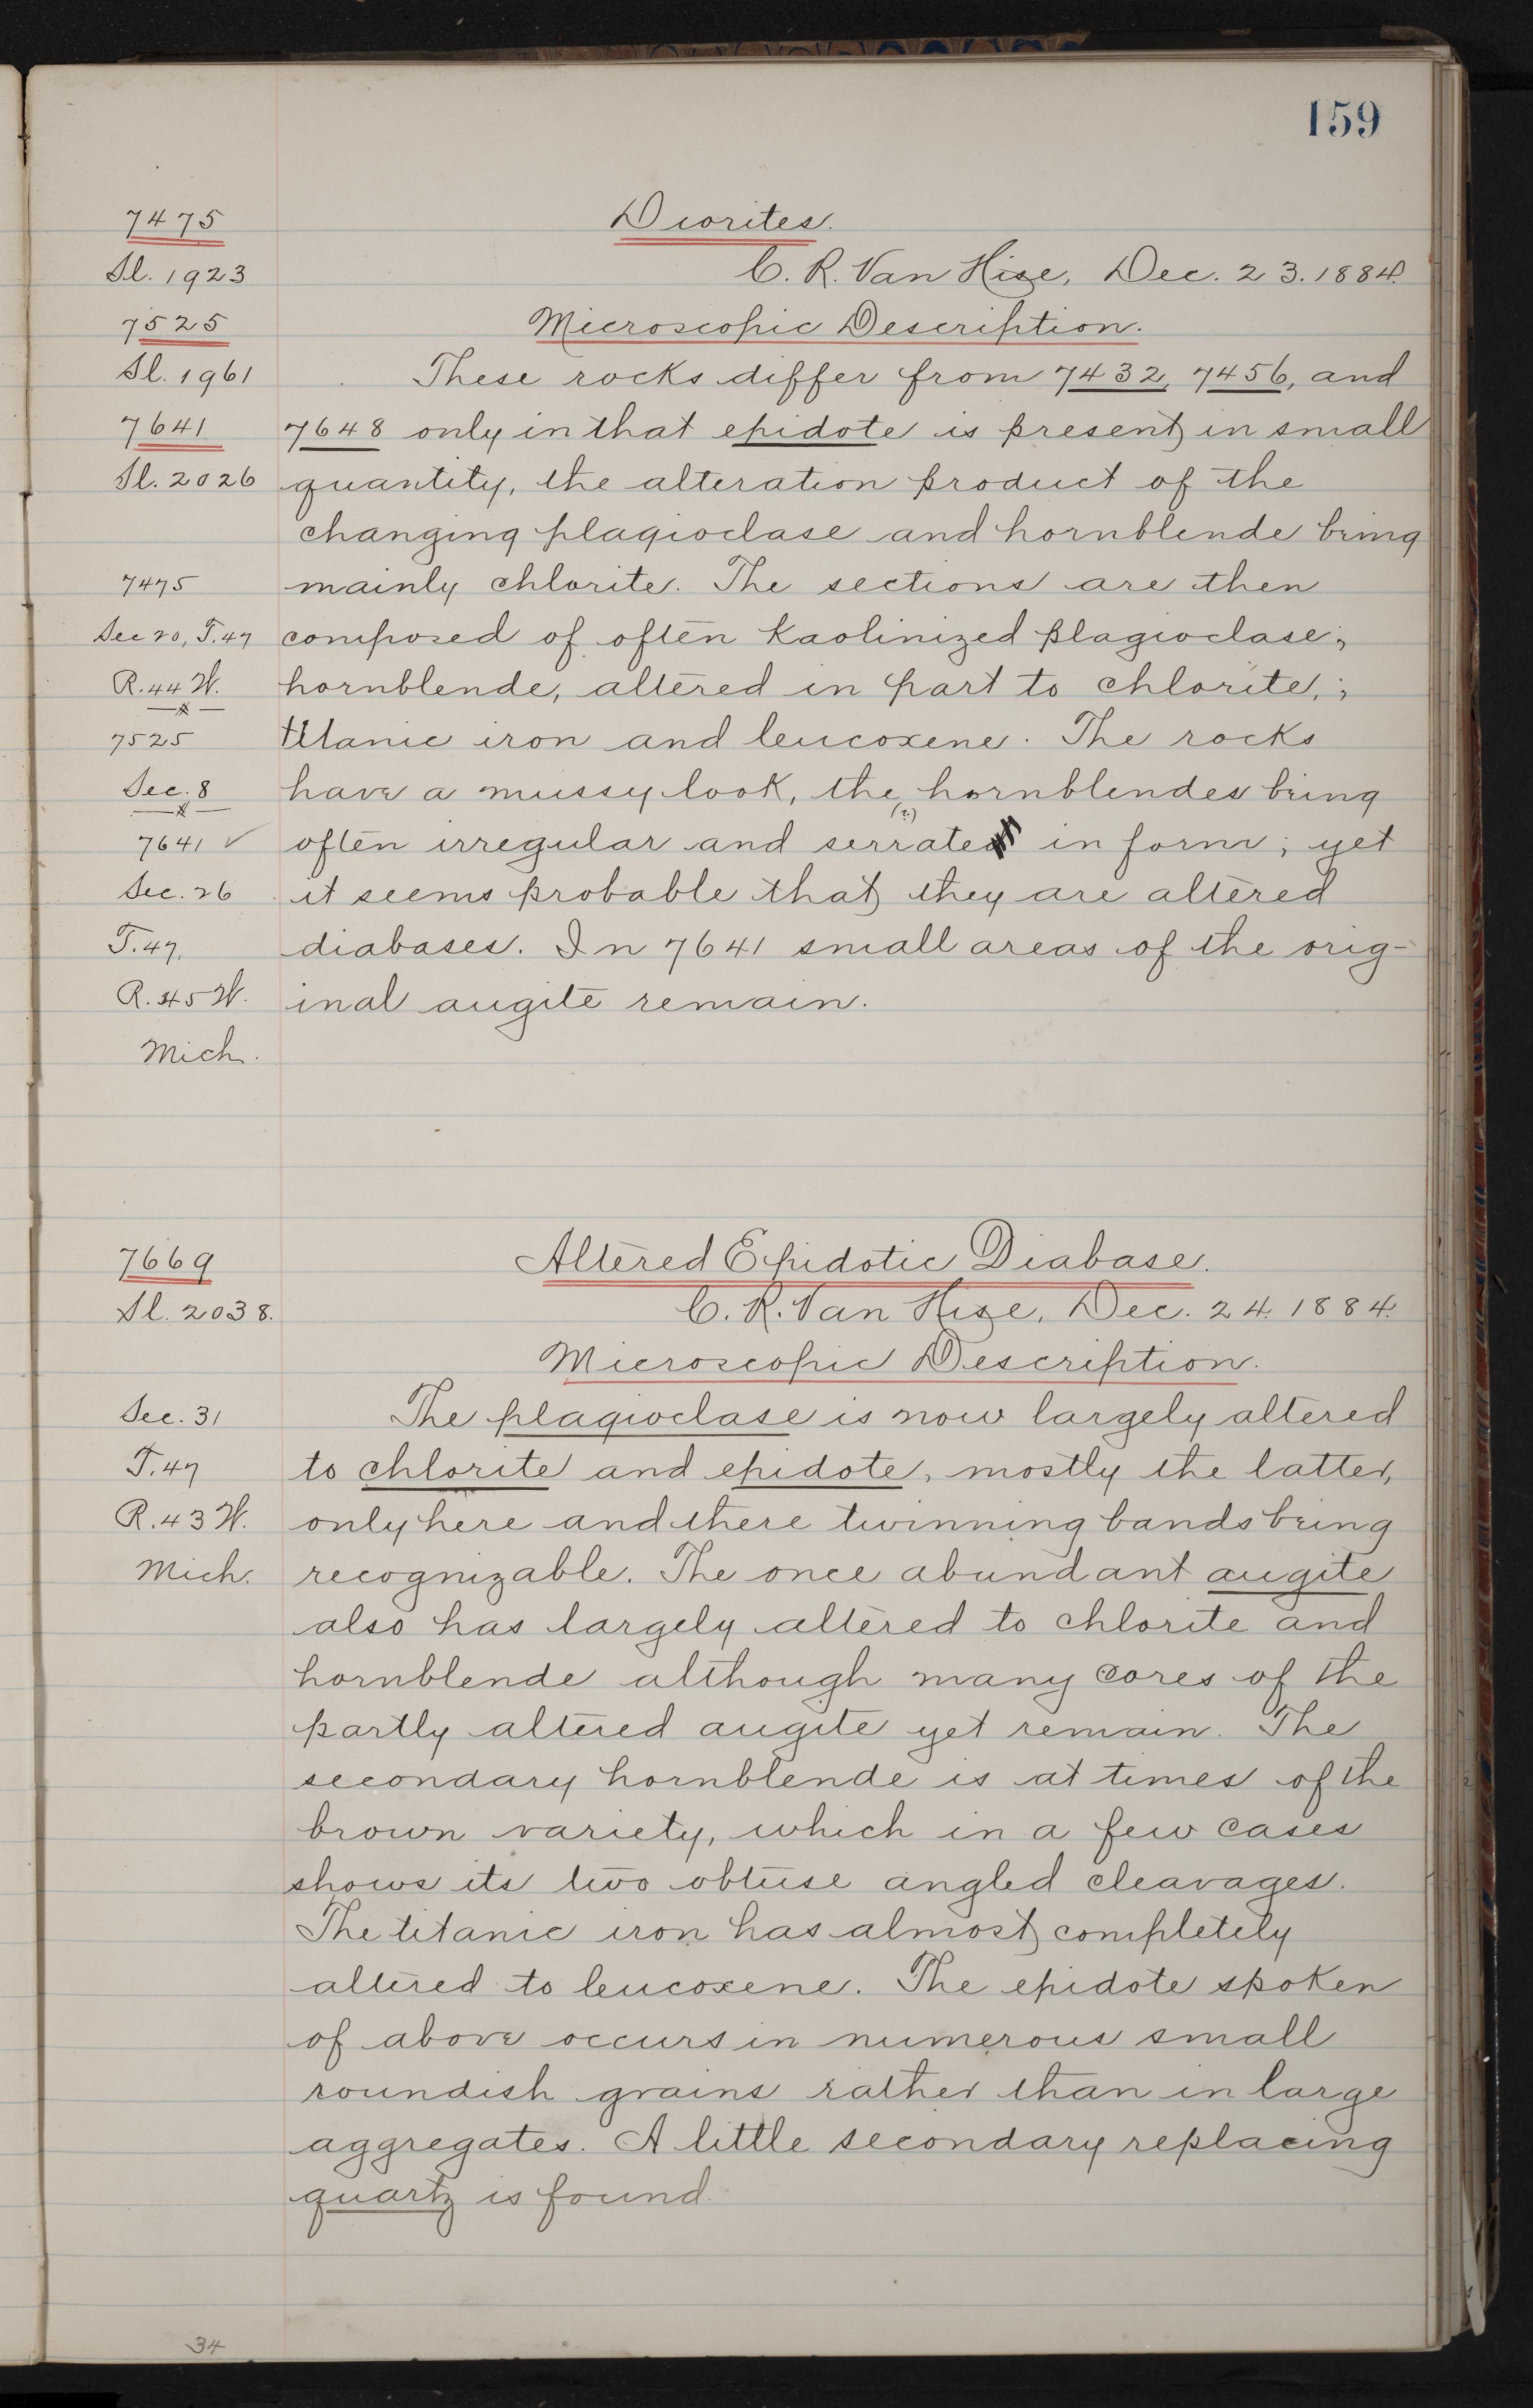 159
7475
Diorites.
Sl. 1923
C. R. Van Hise, Dec. 23. 1884.
7525
Microscopic Description.
Sl. 1961
These rocks differ from 7432, 7456, and
7641
7648 only in that epidote is present in small
Sl. 2026
quantity, the alteration product of the
changing plagioclase and hornblende being
7475
mainly chlorite. The sections are then
Sec 20, T.47
composed of often kaolinized plagioclase;
R. 44 W.
hornblende, altered in part to chlorite, ;
7525
titanic iron and leucoxene. The rocks
Sec. 8
have a mussy look, the hornblendes being
(?)
7641 ✓
often irregular and serrate in form; yet
Sec. 26
it seems probable that they are altered
T. 47.
diabases. In 7641 small areas of the orig-
R. 45 W.
inal augite remain.
Mich.
7669
Altered Epidotic Diabase.
Sl. 2038.
C. R. Van Hise, Dec. 24. 1884.
Microscopic Description.
Sec. 31
The plagioclase is now largely altered
T. 47
to chlorite and epidote, mostly the latter,
R. 43 W.
only here and there twinning bands being
Mich.
recognizable. The once abundant augite
also has largely altered to chlorite and
hornblende although many cores of the
partly altered augite yet remain. The
secondary hornblende is at times of the
brown variety, which in a few cases
shows its two obtuse angled cleavages.
The titanic iron has almost completely
altered to leucoxene. The epidote spoken
of above occurs in numerous small
roundish grains rather than in large
aggregates. A little secondary replacing
quartz is found.
34